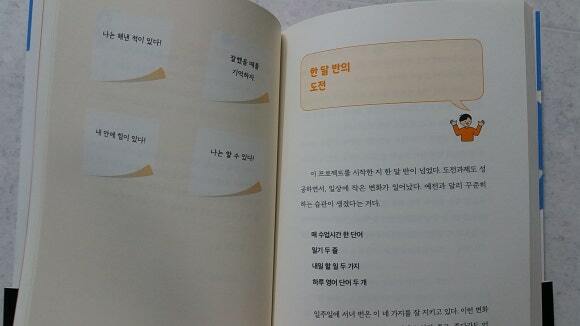 나는 해낸 적이 있다!
잘했을 때를
기억하자.
내 안에 힘이 있다!
나는 할 수 있다!
한 달 반의
도전
이 프로젝트를 시작한 지 한 달 반이 넘었다. 도전과제도 성
공하면서, 일상에 작은 변화가 일어났다. 예전과 달리 꾸준히
하는 습관이 생겼다는 거다.
매 수업시간 한 단어
일기 두 줄
내일 할 일 두 가지
하루 영어 단어 두 개
일주일에 서너 번은 이 네 가지를 잘 지키고 있다. 이런 변화